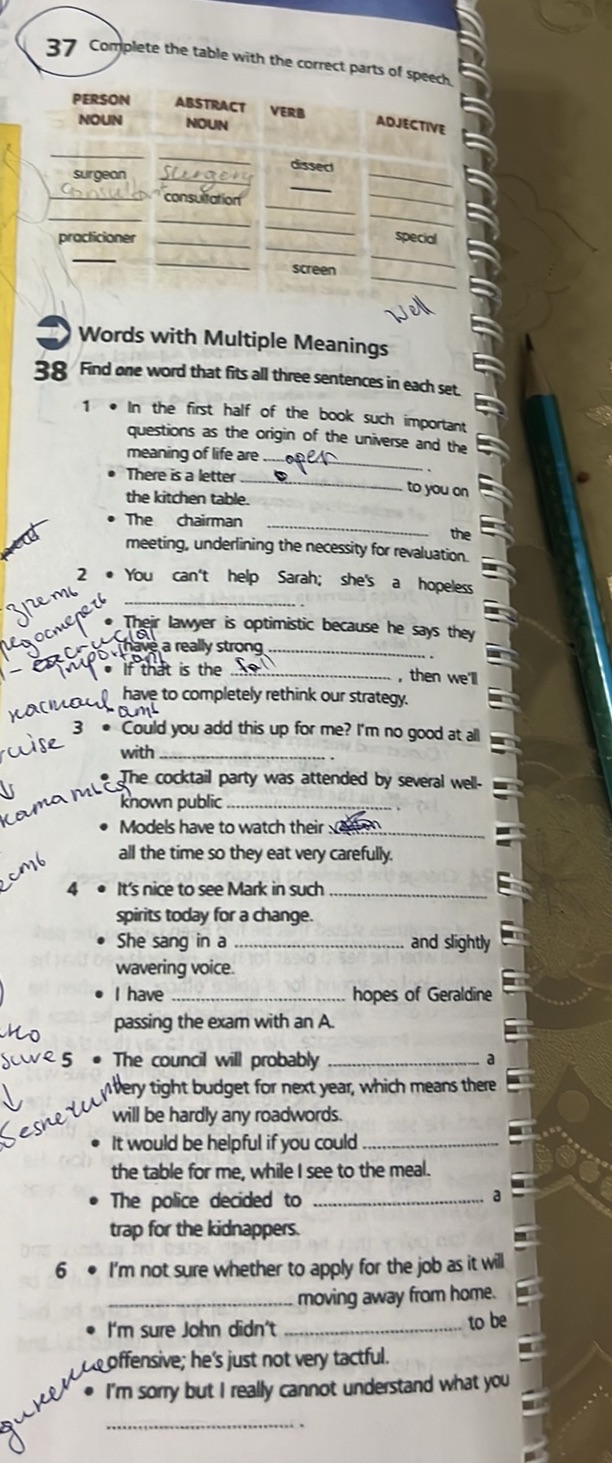 37 Complete the table with the correct parts of speech.
PERSON NOUN ABSTRACT NOUN VERB ADJECTIVE
dissect
surgeon surgery
consultant consultation
practicioner special
screen
well
Words with Multiple Meanings
38 Find one word that fits all three sentences in each set.
1 • In the first half of the book such important
questions as the origin of the universe and the
meaning of life are open .
• There is a letter to you on
the kitchen table.
• The chairman the
meeting, underlining the necessity for revaluation.
2 • You can't help Sarah; she's a hopeless
.
• Their lawyer is optimistic because he says they
have a really strong .
crucial
important
• If that is the , then we'll
have to completely rethink our strategy.
3 • Could you add this up for me? I'm no good at all
with .
• The cocktail party was attended by several well-
known public .
• Models have to watch their
all the time so they eat very carefully.
4 • It's nice to see Mark in such
spirits today for a change.
• She sang in a and slightly
wavering voice.
• I have hopes of Geraldine
passing the exam with an A.
5 • The council will probably a
very tight budget for next year, which means there
will be hardly any roadwords.
• It would be helpful if you could
the table for me, while I see to the meal.
• The police decided to a
trap for the kidnappers.
6 • I'm not sure whether to apply for the job as it will
moving away from home.
• I'm sure John didn't to be
offensive; he's just not very tactful.
• I'm sorry but I really cannot understand what you
.